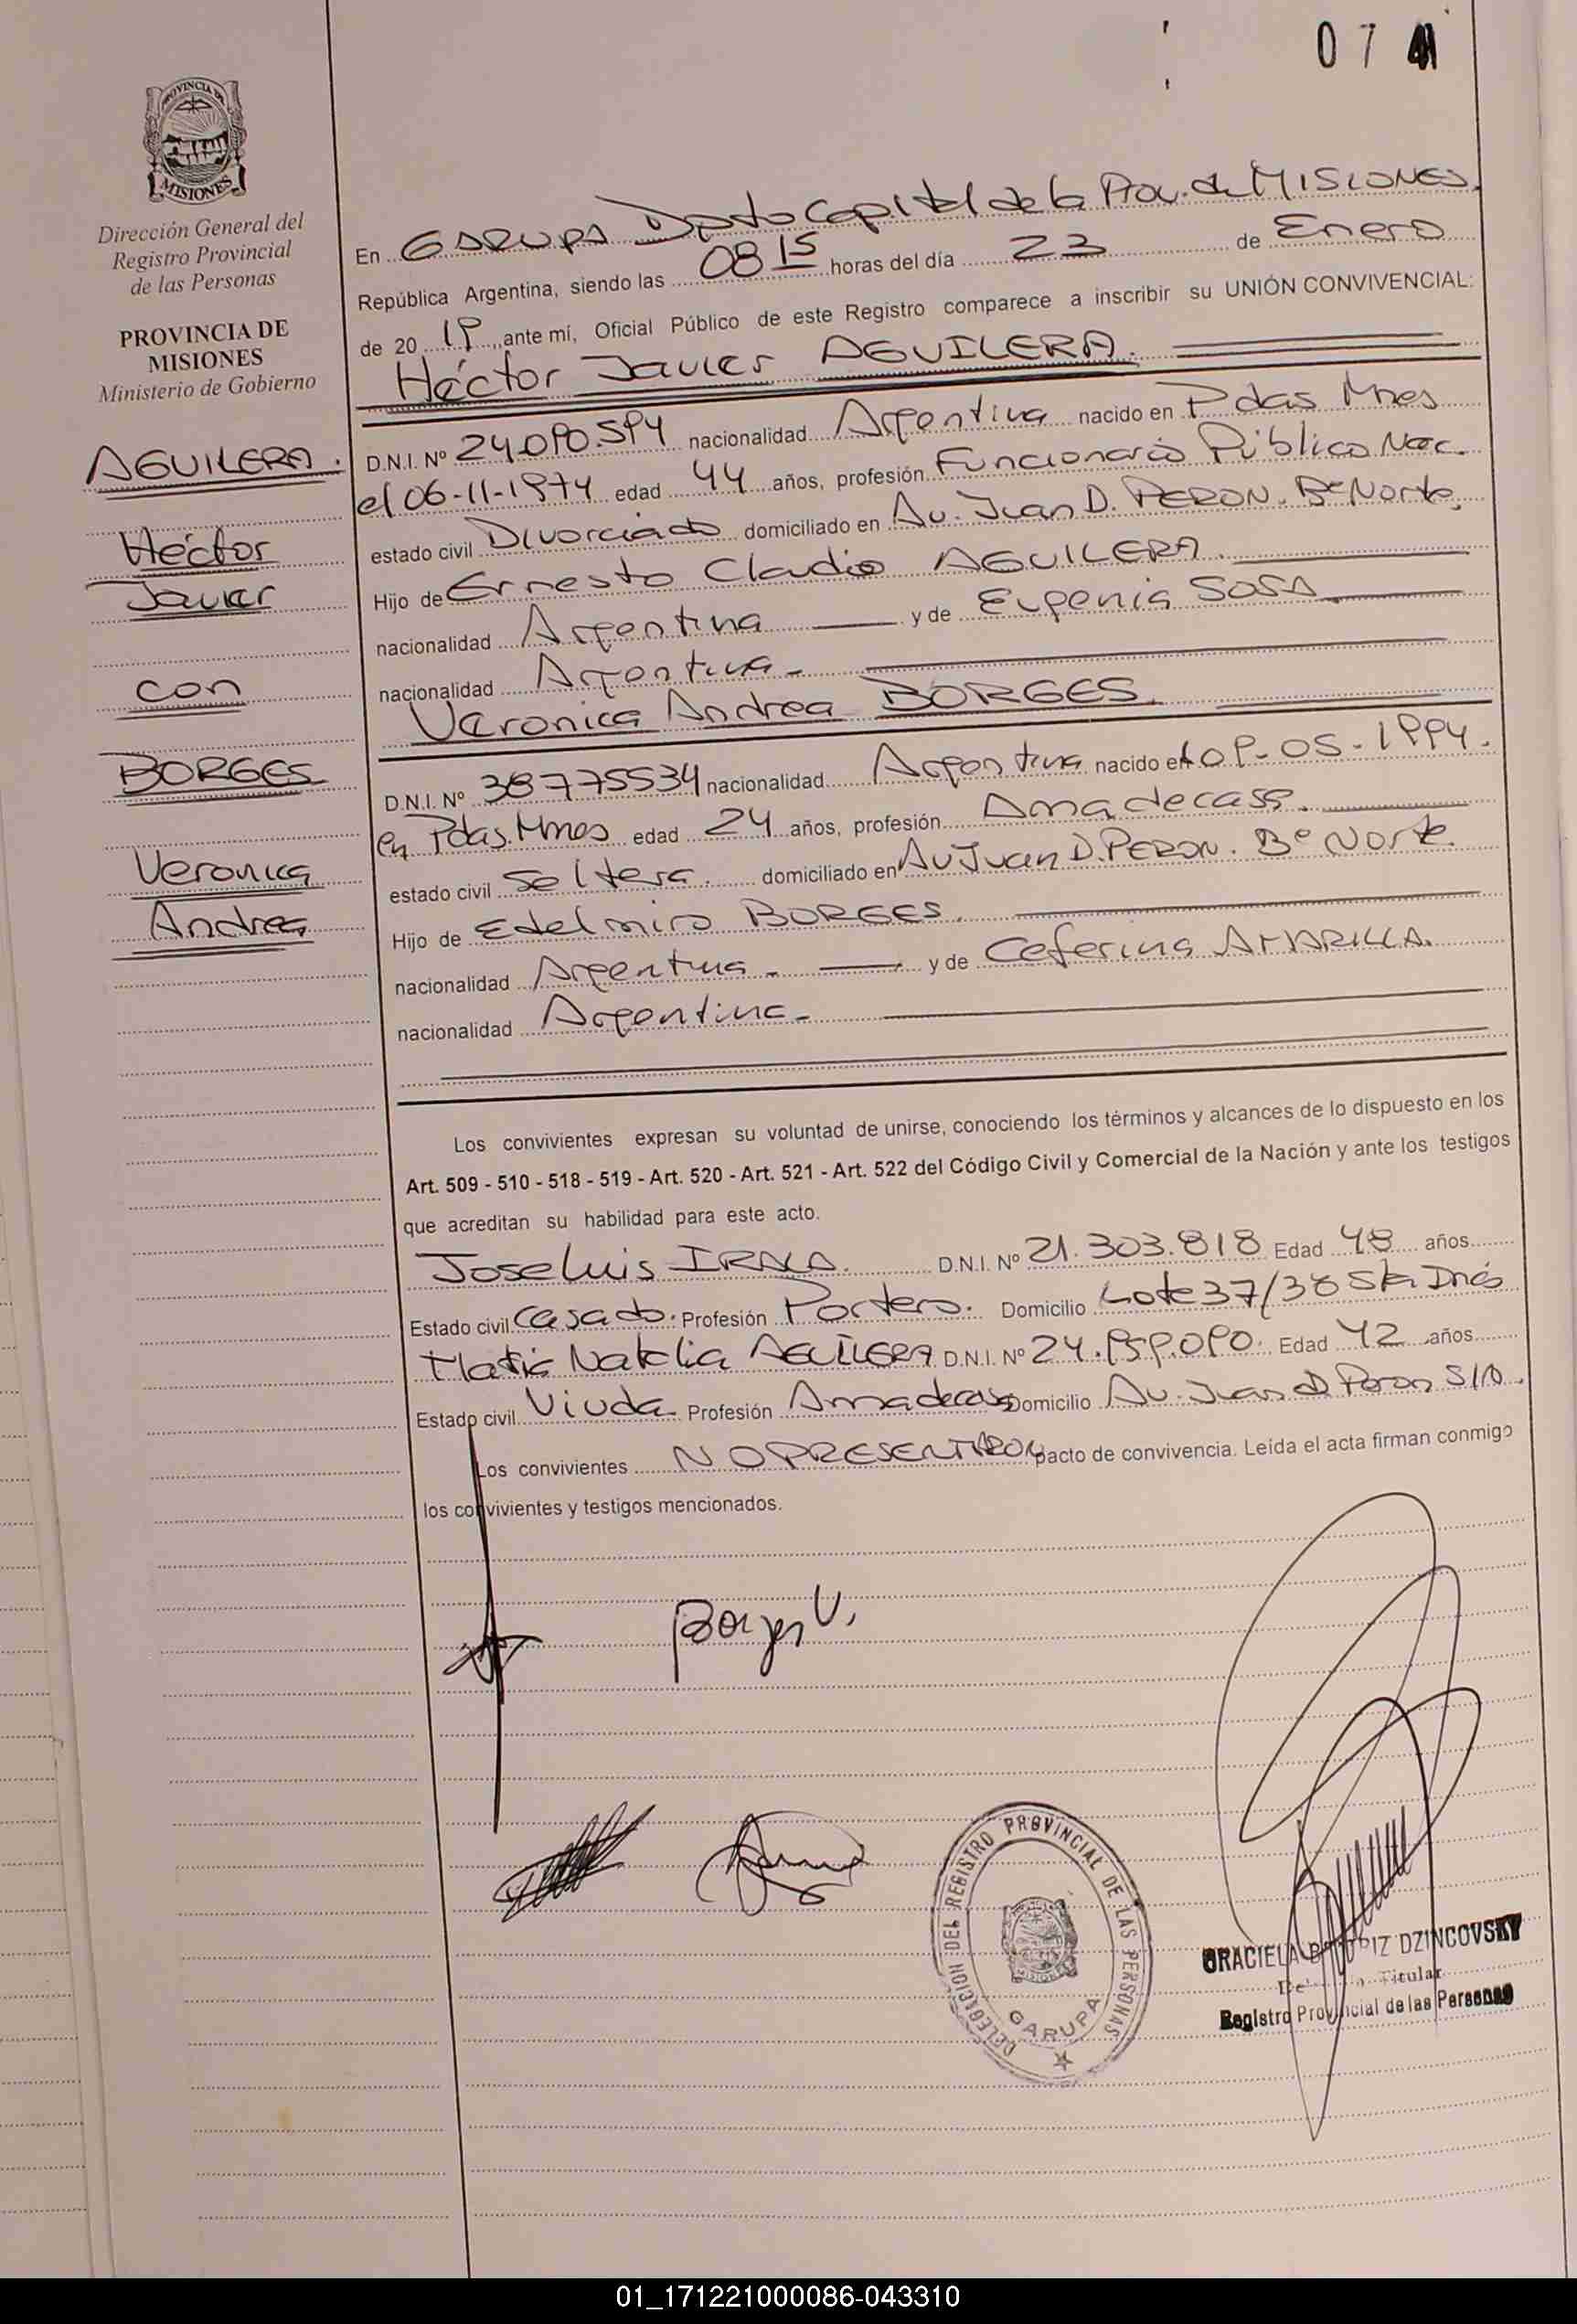 0 7
PROVINCIA DE
MISIONES
Dirección General del
Registro Provincial
de las Personas
PROVINCIA DE
MISIONES
Ministerio de Gobierno
AGUILERA.
Héctor
Javier
con
BORGES
Veronica
Andrea
En GARUPA Dpto Capital de la Prov. de MISIONES.
República Argentina, siendo las 08 15 horas del día 23 de Enero
de 20 19 ante mí, Oficial Público de este Registro comparece a inscribir su UNIÓN CONVIVENCIAL:
Héctor Javier AGUILERA.
D.N.I. Nº 24.090.594 nacionalidad Argentina nacido en Pdas Mnes
el 06-11-1974 edad 44 años, profesión Funcionario Público Nac.
estado civil Divorciado domiciliado en Av. Juan D. PERON. Bº Norte.
Hijo de Ernesto Claudio AGUILERA.
nacionalidad Argentina y de Eugenia SOSA
nacionalidad Argentina-
Veronica Andrea BORGES.
D.N.I. Nº 38775534 nacionalidad Argentina nacido el 09-05-1994.
en Pdas. Mnes edad 24 años, profesión Ama de casa.
estado civil Soltera. domiciliado en Av Juan D. PERON. Bº Norte.
Hijo de Edelmiro BORGES.
nacionalidad Argentina- y de Ceferina AMARILLA.
nacionalidad Argentina-
Los convivientes expresan su voluntad de unirse, conociendo los términos y alcances de lo dispuesto en los
Art. 509 - 510 - 518 - 519 - Art. 520 - Art. 521 - Art. 522 del Código Civil y Comercial de la Nación y ante los testigos
que acreditan su habilidad para este acto.
Jose Luis IRALA. D.N.I. Nº 21.303.818 Edad 48 años
Estado civil Casado. Profesión Portero. Domicilio Lote 37/38 Sta Inés
Maria Natalia AGUILERA D.N.I. Nº 24.959.090. Edad 42 años
Estado civil Viuda Profesión Ama de casa Domicilio Av. Juan D Peron S/N.
Los convivientes NO PRESENTARON pacto de convivencia. Leída el acta firman conmigo
los convivientes y testigos mencionados.
Borges V.
DELEGACION DEL REGISTRO PROVINCIAL DE LAS PERSONAS
MISIONES
GARUPA
GRACIELA BEATRIZ DZINCOVSKY
Titular
Registro Provincial de las Personas
01_171221000086-043310